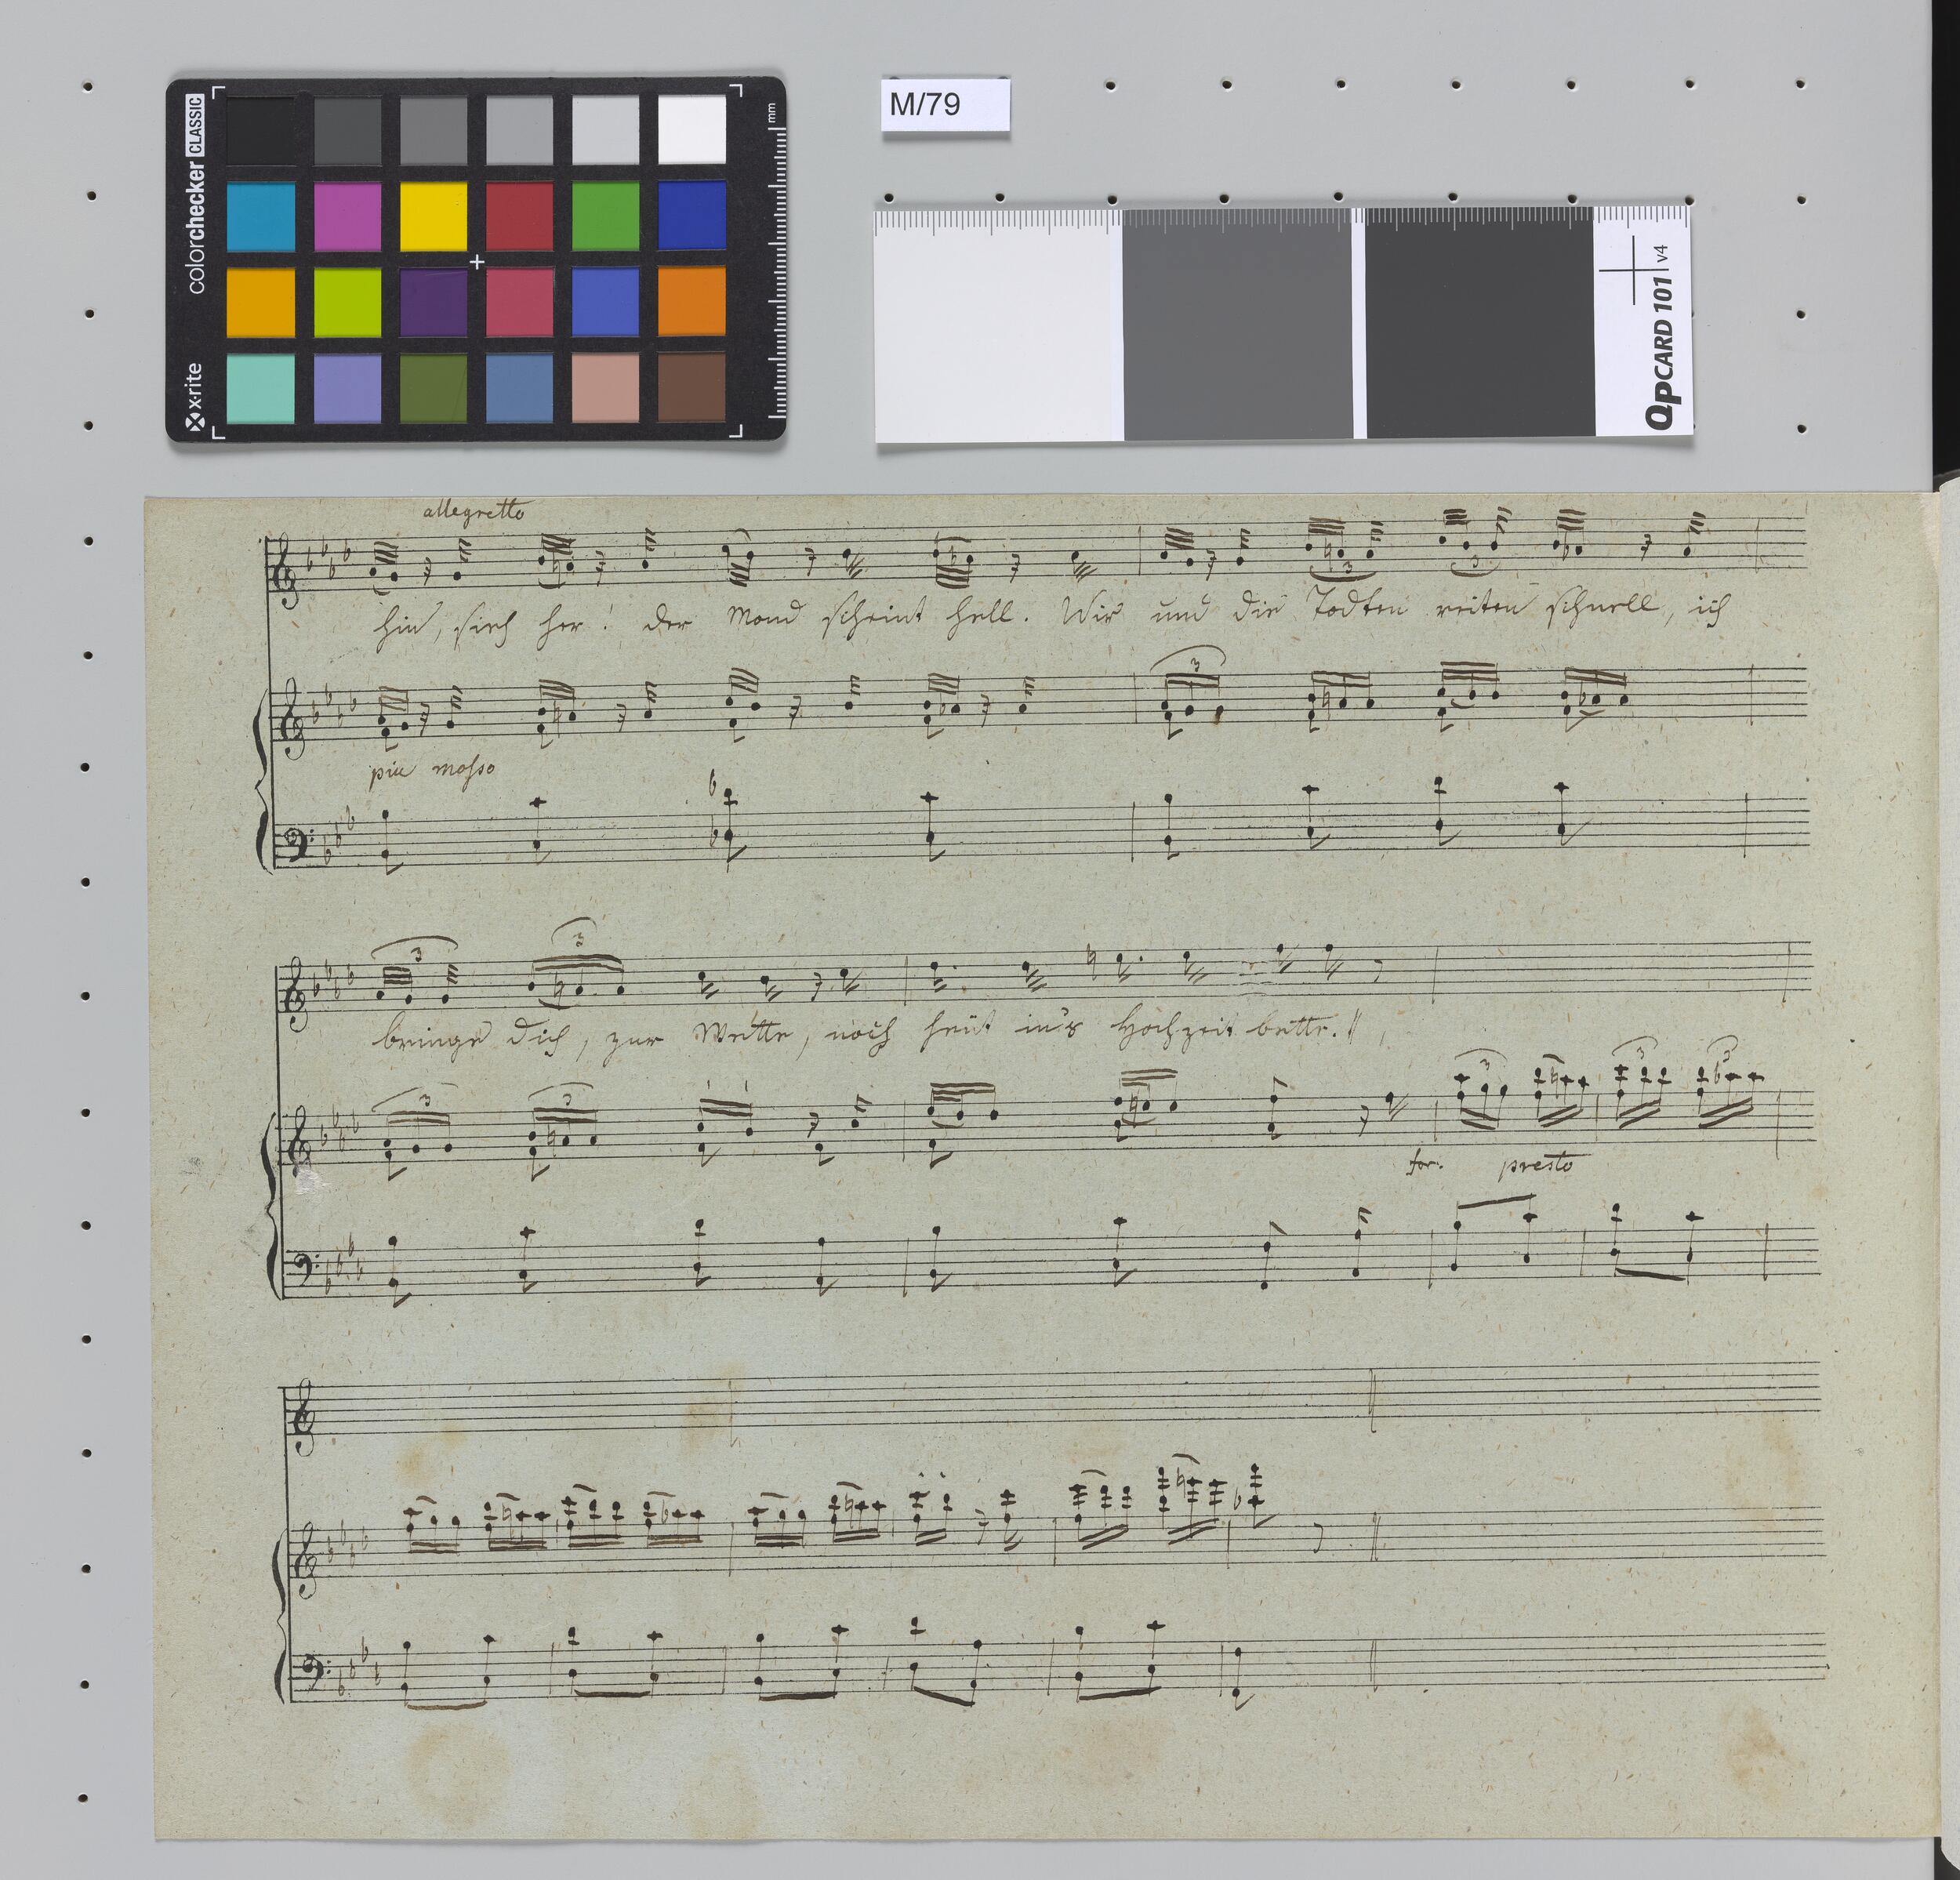 x-rite colorchecker CLASSIC
mm
M/79
QPCARD 101 v4
allegretto
hin, sieh her! der Mond scheint hell. Wir und die Todten reiten schnell, ich
3 3
3
piu mosso
3 3
bringe dich, zur Wette, noch heut in's Hochzeit bette.
3 3 3 3 3
for. presto